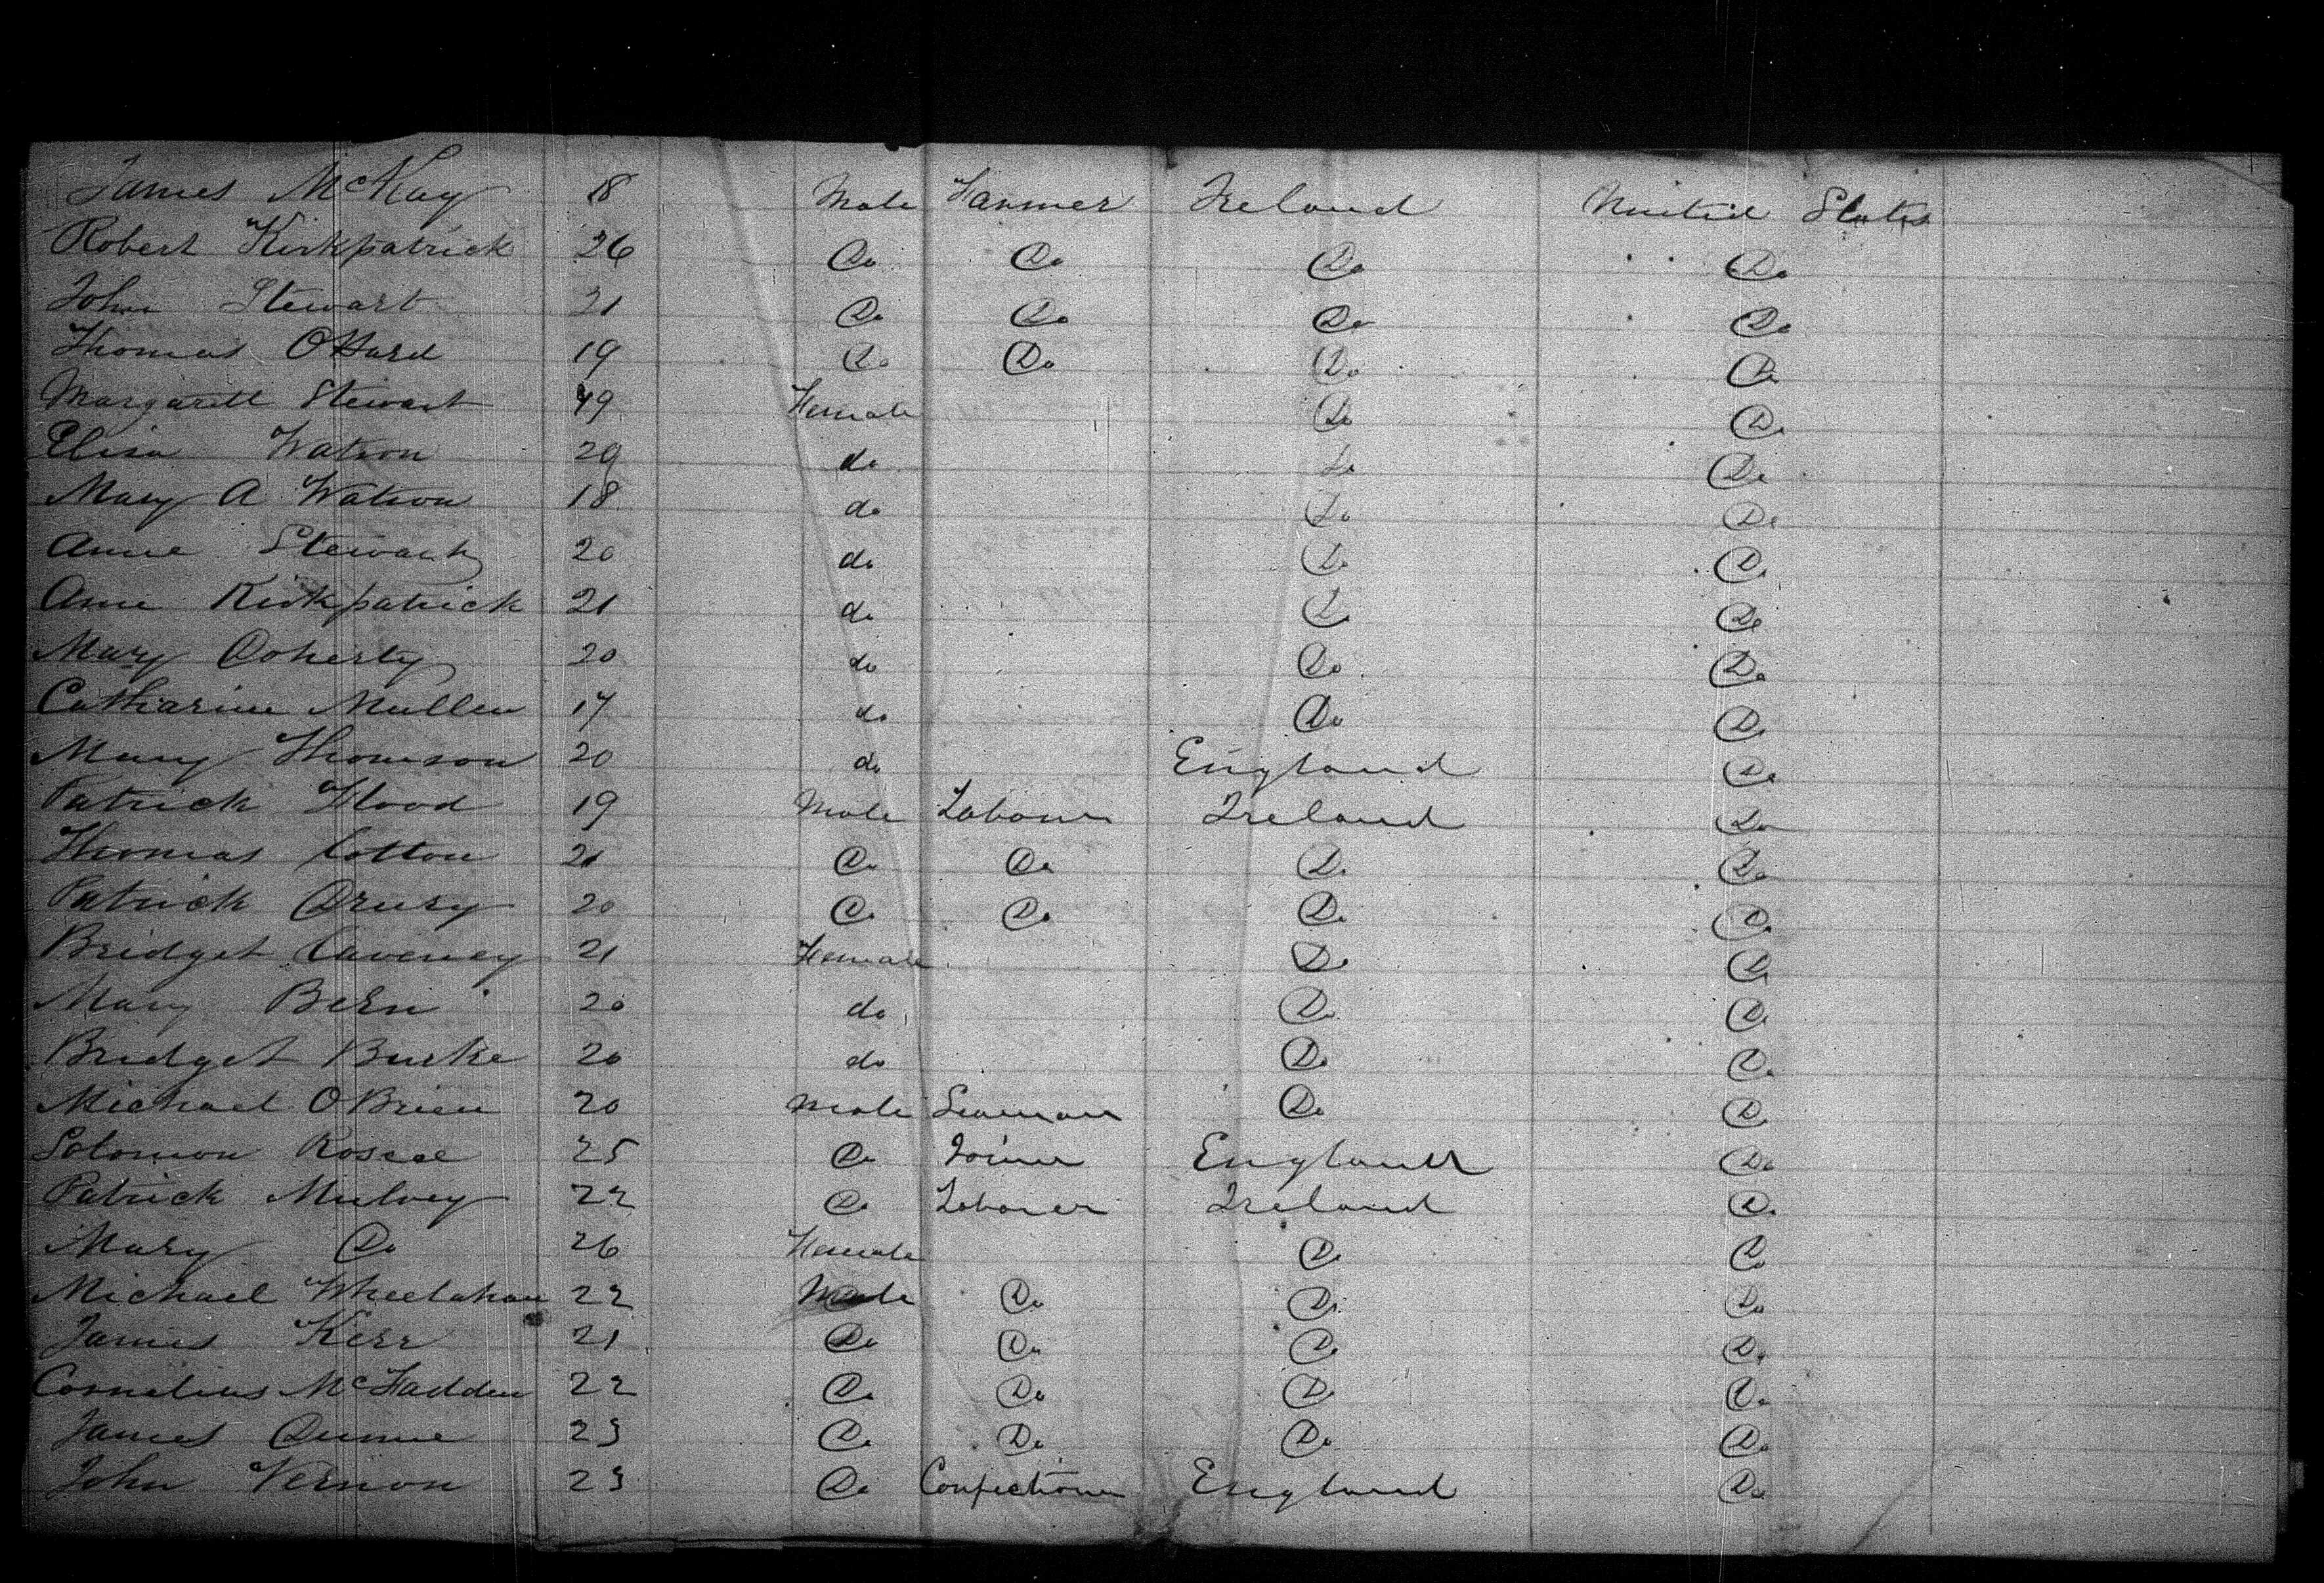 James McKay 18 Male Farmer Ireland United States
Robert Kirkpatrick 26 Do Do Do Do
John Stewart 21 Do Do Do Do
Thomas OHard 19 Do Do Do Do
Margarett Stewart 49 Female Do Do
Elisa Watson 29 do Do Do
Mary A Watson 18 do Do Do
Anne Stewart 20 do Do Do
Ann Kirkpatrick 21 do Do Do
Mary Doherty 20 do Do Do
Catharine Mullen 17 do Do Do
Mary Thomson 20 do England Do
Patrick Flood 19 Male Labourer Ireland Do
Thomas Cotton 21 Do Do Do Do
Patrick Drury 20 Do Do Do Do
Bridget Caveney 21 Female Do Do
Mary 20 do Do Do
Bridget Burke 20 do Do Do
Michael OBrien 20 Male Seaman Do Do
Solomon Roscoe 25 Do Joiner England Do
Patrick Mulvey 22 Do Laborer Ireland Do
Mary Do 26 Female Do Do
Michael Wheelahan 22 Male Do Do Do
James Kerr 21 Do Do Do Do
Cornelius McFadden 22 Do Do Do Do
James Dunne 23 Do Do Do Do
John Vernon 23 Do Confectioner England Do